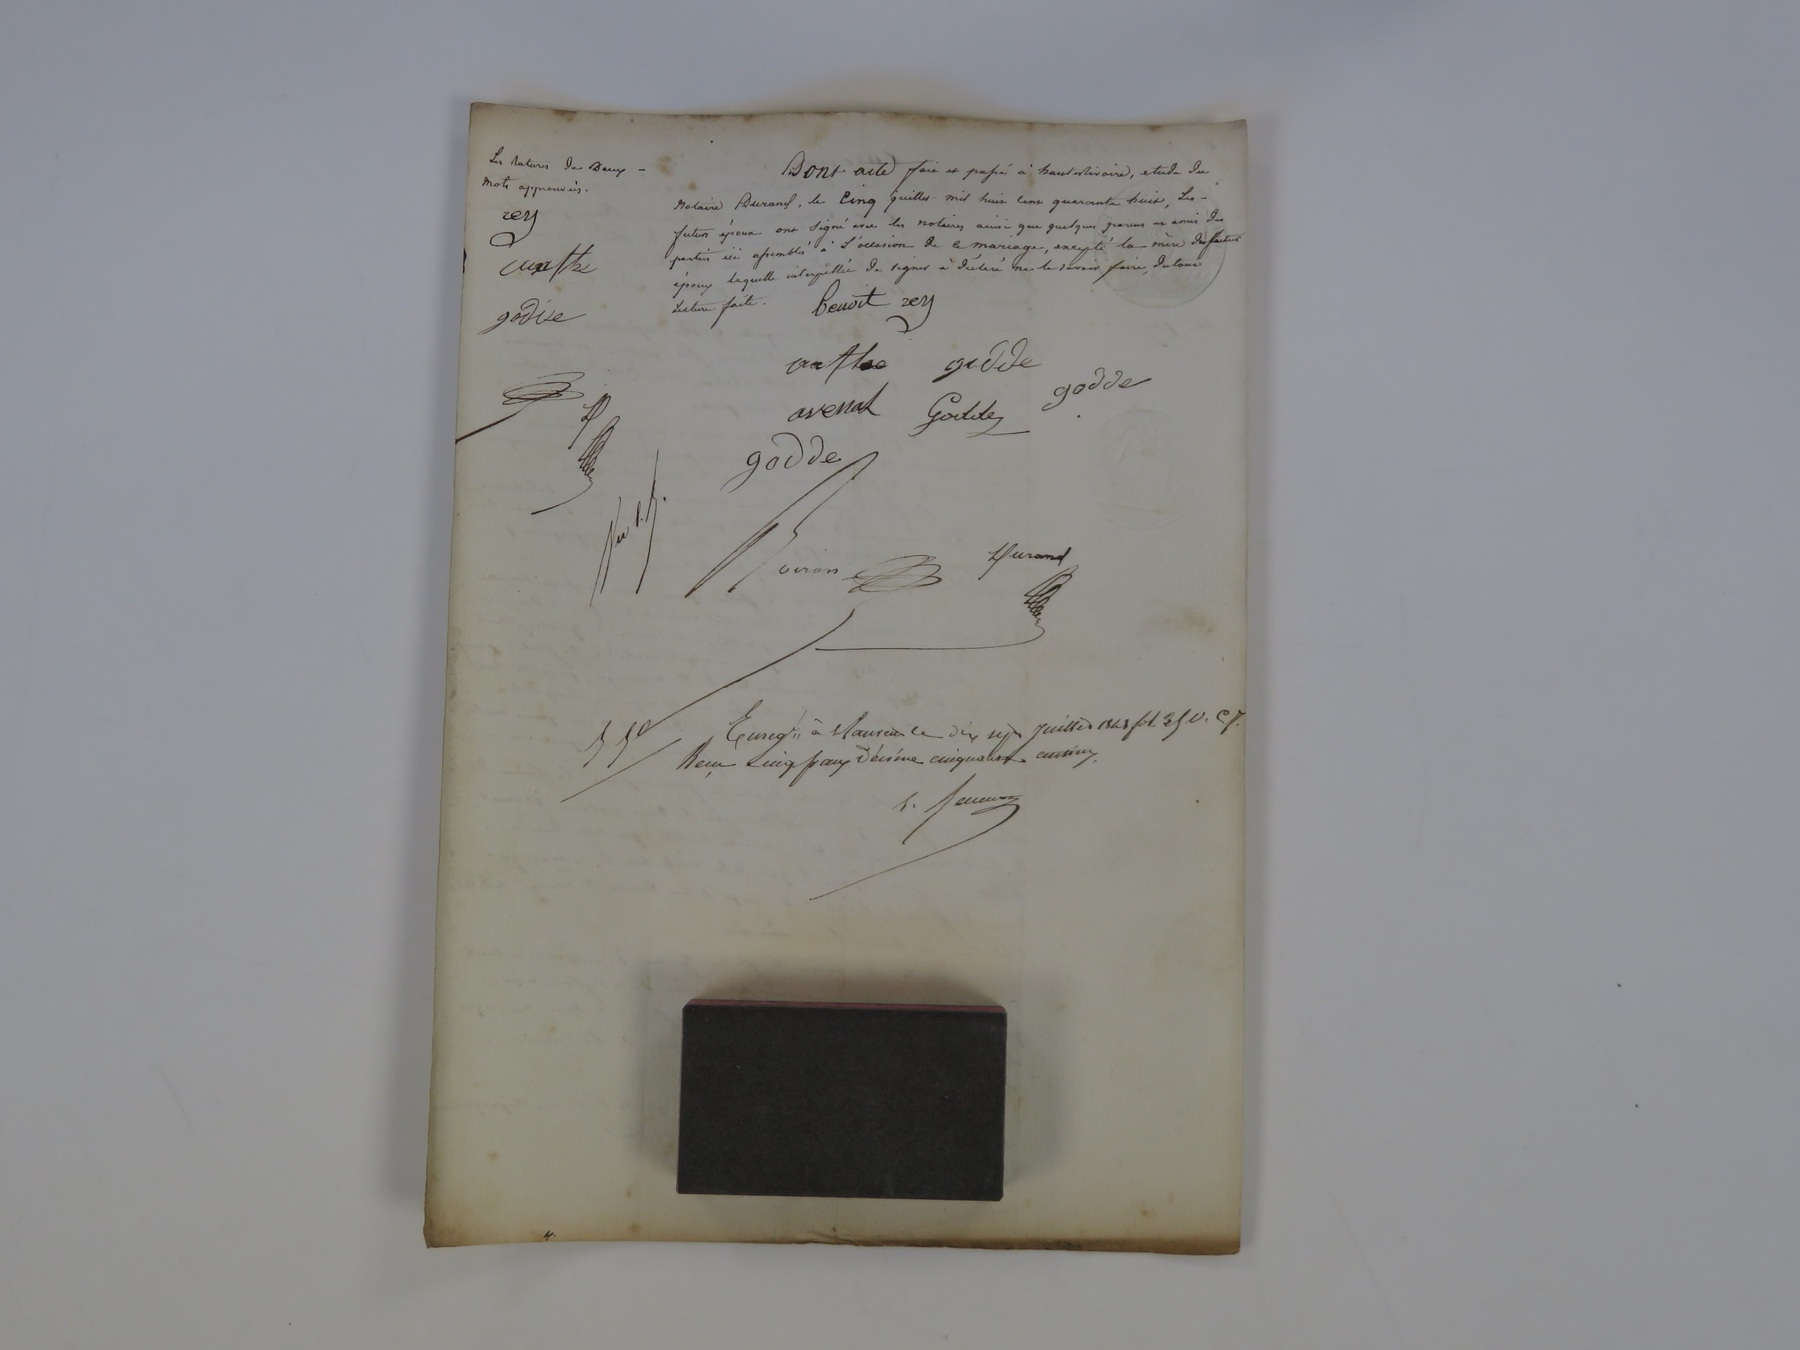 Les ratures de Deux
mots approuvés.
rey
godde
Dont acte fait et passé à hauterivoire, etude du
Notaire Durand, le Cinq juillet mil huit cent quarante huit, Les
futurs époux ont signé avec les notaires ainsi que quelques parens et amis des
parties ici assemblés à l'occasion de ce mariage, excepté la mère du futur
époux laquelle interpellée de signer a déclaré ne le savoir faire, de tout
Lecture faite.
benoit rey
godde
godde
avenat Godde
godde
Boiron
Durand
Enreg à le dix sept Juillet 1848 fol.
Reçu cinq francs Décime cinquante centimes.